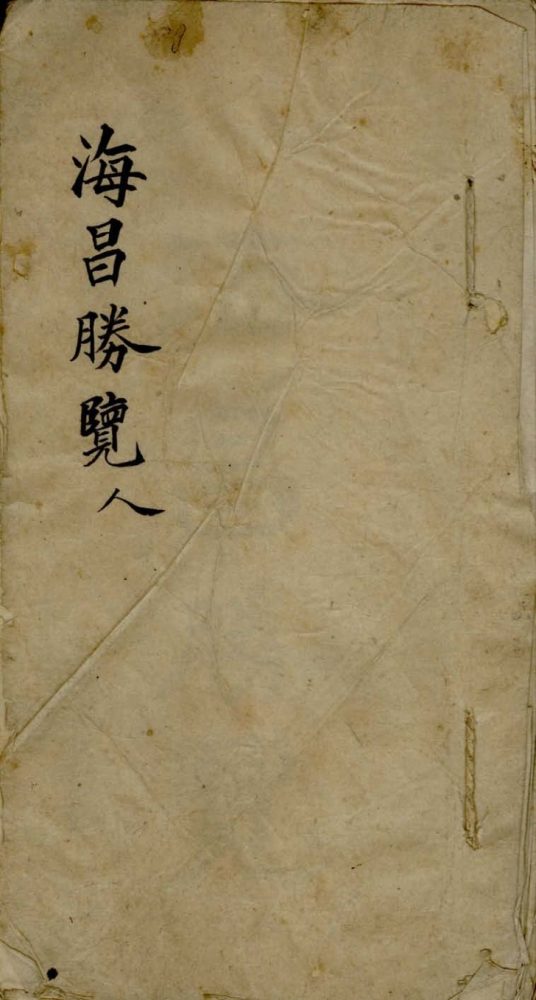 海昌勝覽人